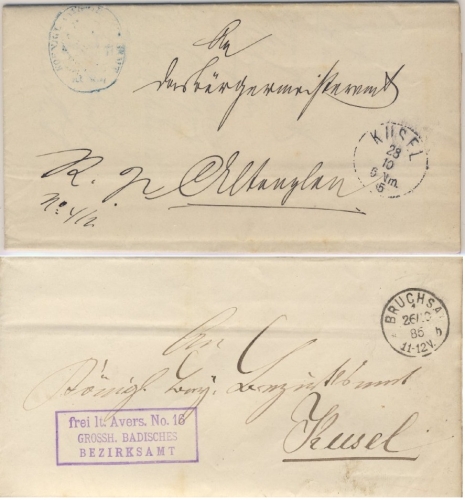 An
das Bürgermeisteramt
KUSEL
28
10
6 Nm.
R. S.
Altenglan
BRUCHSA
26/10
86
11-12V.
An
Königl. Bay. Bezirksamt
Kusel
frei lt. Avers. No. 16
GROSSH. BADISCHES
BEZIRKSAMT